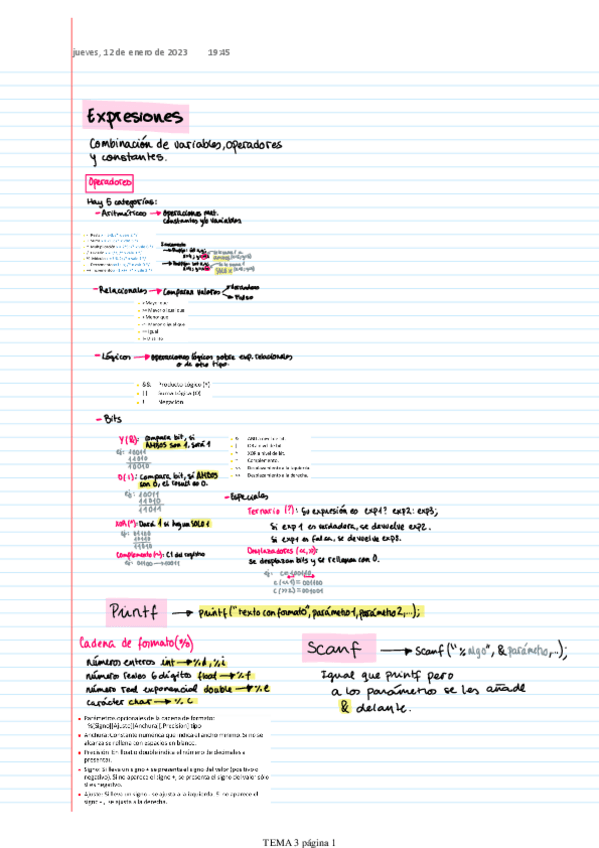 jueves, 12 de enero de 2023 19:45
Expresiones
Combinación de variables, operadores
y constantes.
Operadores
Hay 5 categorías:
- Aritméticos → Operaciones mat.
constantes y/o variables
- Relacionales → Comparar valores → Verdadero
→ Falso
> Mayor que
>= Mayor o igual que
< Menor que
<= Menor o igual que
== Igual
!= Distinto
- Lógicos → Operaciones lógicas sobre exp. relacionales
o de otro tipo.
&& Producto Lógico (Y)
|| Suma Lógica (O)
! Negación
- Bits
Y (&): compara bit, si
AMBOS son 1, será 1
ej: 10011
11010
10010
O (|): compara bit, si AMBOS
son 0, el result es 0.
ej: 10011
11010
11011
XOR (^): Dará 1 si hay un SOLO 1
Complemento (~): C1 del registro
ej: 01100 → 10011
& AND a nivel de bit.
| OR a nivel de bit.
^ XOR a nivel de bit.
~ Complemento.
<< Desplazamiento a la izquierda.
>> Desplazamiento a la derecha.
- Especiales
Ternario (?): Su expresión es exp1? exp2: exp3;
Si exp1 es verdadera, se devuelve exp2.
Si exp1 es falsa, se devuelve exp3.
Desplazadores (<<, >>):
se desplazan bits y se rellenan con 0.
Printf → printf("texto con formato", parámetro 1, parámetro 2,...);
Cadena de formato (%)
números enteros int → %d, %i
números reales 6 dígitos float → %f
número real exponencial double → %e
carácter char → %c
Scanf → scanf("%algo", &parámetro,...);
Igual que printf pero
a los parámetros se les añade
& delante.
Parámetros opcionales de la cadena de formato:
%[Signo][Ajuste][Anchura][.Precision] tipo
Anchura: Constante numérica que indica el ancho mínimo. Si no se
alcanza se rellena con espacios en blanco.
Precisión: En float o double indica el número de decimales a
presentar.
Signo: Si lleva un signo + se presenta el signo del valor (positivo o
negativo). Si no aparece el signo +, se presenta el signo del valor sólo
si es negativo.
Ajuste: Si lleva un signo - se ajusta a la izquierda. Si no aparece el
signo - , se ajusta a la derecha.
TEMA 3 página 1